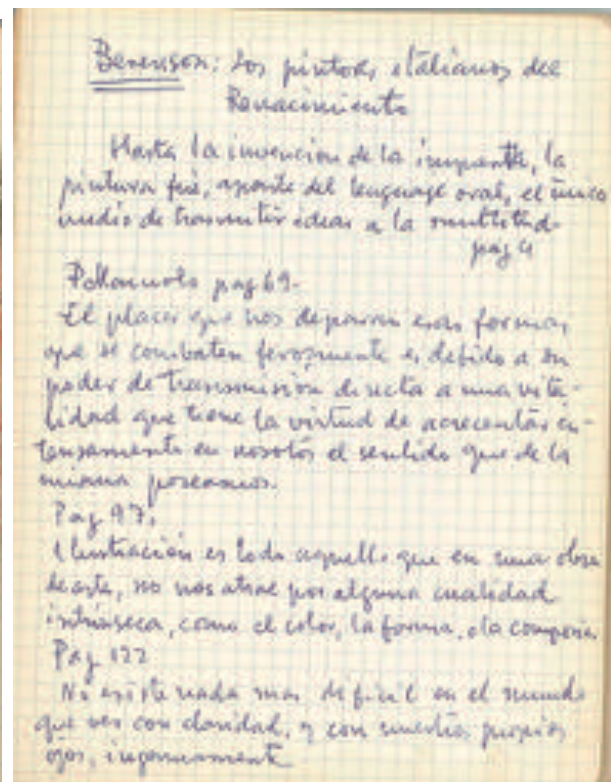 Berenson: Los pintores italianos del
Renacimiento
Hasta la invencion de la imprenta, la
pintura fué, aparte del lenguage oral, el único
medio de trasmitir ideas a la multitud-
pag 4
Pollauiolo pag 69-
El placer que nos deparan esas formas
que se combaten ferozmente es debido a su
poder de transmisión directa a una vita-
lidad que tiene la virtud de acrecentar in-
tensamente en nosotros el sentido que de la
misma poseamos.
Pag 97.
Ilustración es todo aquello que en una obra
de arte, no nos atrae por alguna cualidad
intrínseca, como el color, la forma, o la
Pag 122
No existe nada mas dificil en el mundo
que ver con claridad, y con nuestros propios
ojos, ingenuamente